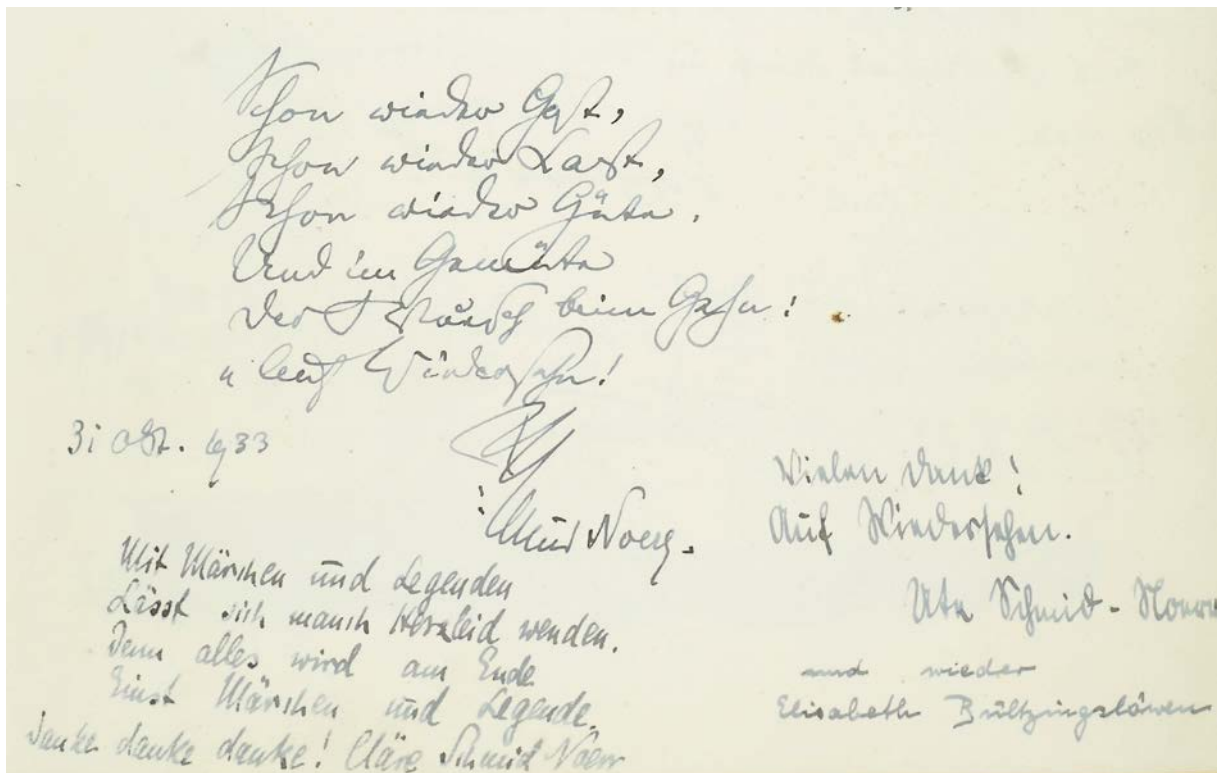 Schon wieder Gast,
Schon wieder Last,
Schon wieder Güte.
Und im Gemüte
Der Wunsch beim Gehn:
Auf Wiedersehn!
31 Okt. 1933
Mit Märchen und Legenden
Lässt sich manch Herzleid wenden.
Denn alles wird am Ende
Einst Märchen und Legende.
Danke danke danke! Cläre Schmid Noerr
Vielen Dank!
Auf Wiedersehen.
Ute Schmid-Noerr
und wieder
Elisabeth Bültzingslöwen